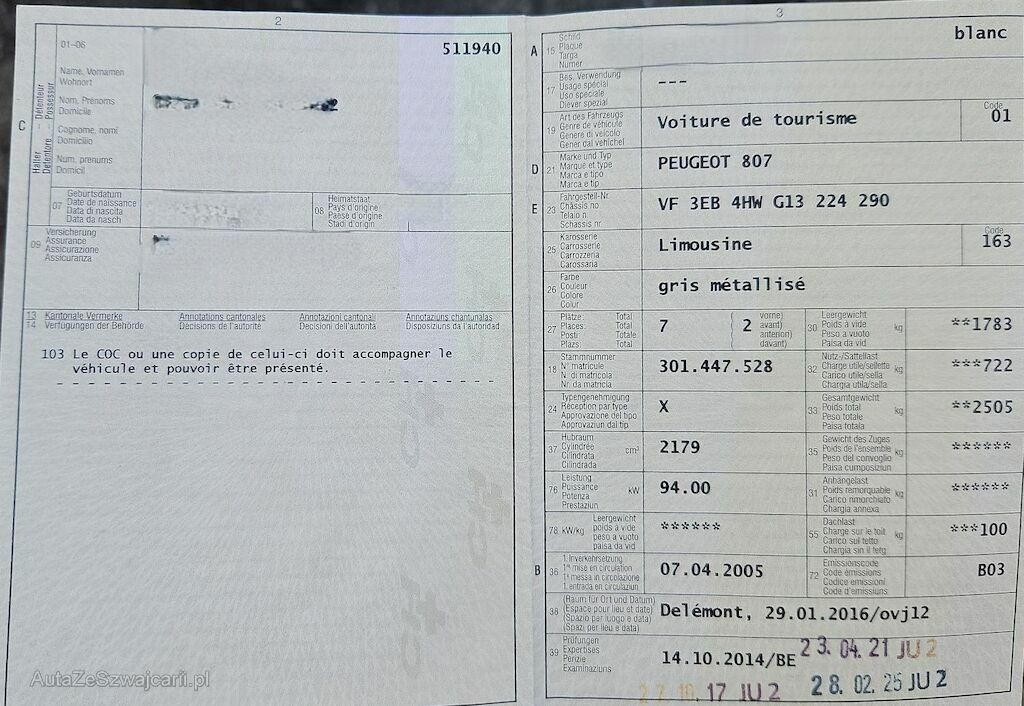 2
01-06
511940
Name, Vornamen
Wohnort
Nom, Prénoms
Domicile
Cognome, nomi
Domicilio
Num, prenums
Domicil
C
Halter - Détenteur
Detentore - Possessur
07
Geburtsdatum
Date de naissance
Data di nascita
Data da nasch
08
Heimatstaat
Pays d'origine
Paese d'origine
Stadi d'origin
09
Versicherung
Assurance
Assicurazione
Assicuranza
13 Kantonale Vermerke Annotations cantonales Annotazioni cantonali Annotaziuns chantunalas
14 Verfügungen der Behörde Décisions de l'autorité Decisioni dell'autorità Disposiziuns da l'autoridad
103 Le COC ou une copie de celui-ci doit accompagner le
véhicule et pouvoir être présenté.
AutaZeSzwajcarii.pl
3
A 15
Schild
Plaque
Targa
Numer
blanc
17
Bes. Verwendung
Usage spécial
Uso speciale
Diever spezial
---
19
Art des Fahrzeugs
Genre de véhicule
Genere di veicolo
Gener dal vehichel
Voiture de tourisme
Code
01
D 21
Marke und Typ
Marque et type
Marca e tipo
Marca e tip
PEUGEOT 807
E 23
Fahrgestell-Nr.
Châssis no
Telaio n.
Schassis nr.
VF 3EB 4HW G13 224 290
25
Karosserie
Carrosserie
Carrozzeria
Carossaria
Limousine
Code
163
26
Farbe
Couleur
Colore
Colur
gris métallisé
27
Plätze: Total
Places: Total
Posti Totale
Plazs: Total
7
2
vorne)
avant)
anteriori)
davant)
30
Leergewicht
Poids à vide
Peso a vuoto
Paisa da vid
kg
**1783
18
Stammnummer
N° matricule
N. di matricola
Nr. da matricla
301.447.528
32
Nutz-/Sattellast
Charge utile/sellette
Carico utile/sella
Chargia utila/sella
kg
***722
24
Typengenehmigung
Réception par type
Approvazione del tipo
Approvaziun dal tip
X
33
Gesamtgewicht
Poids total
Peso totale
Paisa totala
kg
**2505
37
Hubraum
Cylindrée
Cilindrata
Cilindrada
cm³
2179
35
Gewicht des Zuges
Poids de l'ensemble
Peso del convoglio
Paisa cumposiziun
kg
******
76
Leistung
Puissance
Potenza
Prestaziun
kW
94.00
31
Anhängelast
Poids remorquable
Carico rimorchiato
Chargia annexa
kg
******
78 kW/kg
Leergewicht
poids à vide
peso a vuoto
paisa da vid
******
55
Dachlast
Charge sur le toit
Carico sul tetto
Chargia sin il tetg
kg
***100
B 36
1. Inverkehrsetzung
1re mise en circulation
1a messa in circolazione
1. entrada en circulaziun
07.04.2005
72
Emissionscode
Code émissions
Codice emissioni
Code d'emissiuns
B03
38
(Raum für Ort und Datum)
(Espace pour lieu et date)
(Spazio per luogo e data)
(Spazi per lieu e data)
Delémont, 29.01.2016/ovj12
39
Prüfungen
Expertises
Perizie
Examinaziuns
14.10.2014/BE
23.04.21 JU 2
17 JU 2
28.02.25 JU 2